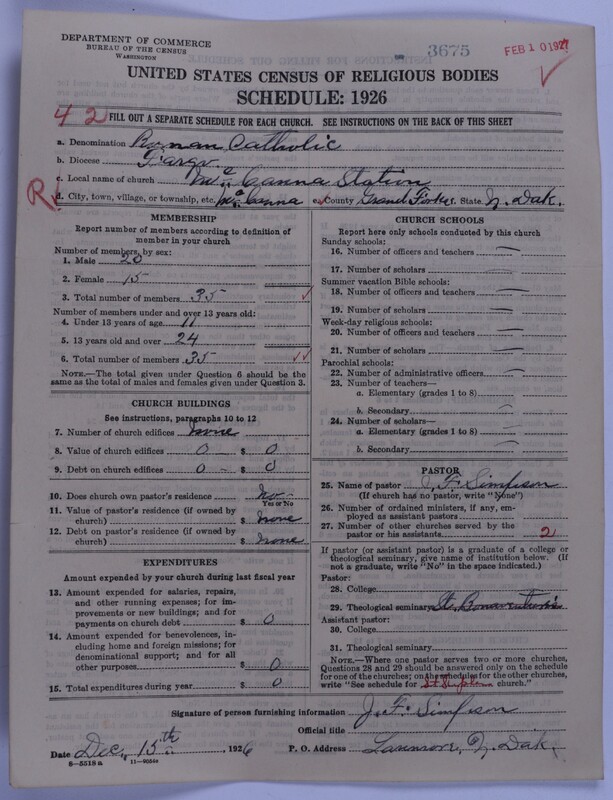 DEPARTMENT OF COMMERCE
BUREAU OF THE CENSUS
WASHINGTON
3675
FEB 10 1927
UNITED STATES CENSUS OF RELIGIOUS BODIES
SCHEDULE: 1926
42 FILL OUT A SEPARATE SCHEDULE FOR EACH CHURCH. SEE INSTRUCTIONS ON THE BACK OF THIS SHEET
a. Denomination Roman Catholic
b. Diocese Fargo
c. Local name of church McCanna Station
R d. City, town, village, or township, etc. McCanna e. County Grand Forks f. State N. Dak.
MEMBERSHIP
Report number of members according to definition of member in your church
Number of members, by sex:
1. Male 20
2. Female 15
3. Total number of members 35
Number of members under and over 13 years old:
4. Under 13 years of age 11
5. 13 years old and over 24
6. Total number of members 35
NOTE.—The total given under Question 6 should be
same as the total of males and females given under Question 3.
CHURCH BUILDINGS
See instructions, paragraphs 10 to 12
7. Number of church edifices None
8. Value of church edifices 0 - $ 0
9. Debt on church edifices 0 - $ 0
10. Does church own pastor's residence No
Yes or No
11. Value of pastor's residence (if owned by
church) $ None
12. Debt on pastor's residence (if owned by
church) $ None
EXPENDITURES
Amount expended by your church during last fiscal year
13. Amount expended for salaries, repairs,
and other running expenses; for im-
provements or new buildings; and for
payments on church debt $ 0
14. Amount expended for benevolences, in-
cluding home and foreign missions; for
denominational support; and for all
other purposes $ 0
15. Total expenditures during year $ 0
CHURCH SCHOOLS
Report here only schools conducted by this church
Sunday schools:
16. Number of officers and teachers —
17. Number of scholars —
Summer vacation Bible schools:
18. Number of officers and teachers —
19. Number of scholars —
Week-day religious schools:
20. Number of officers and teachers —
21. Number of scholars —
Parochial schools:
22. Number of administrative officers —
23. Number of teachers—
a. Elementary (grades 1 to 8) —
b. Secondary —
24. Number of scholars—
a. Elementary (grades 1 to 8) —
b. Secondary —
PASTOR
25. Name of pastor J. F. Simpson
(If church has no pastor, write "None")
26. Number of ordained ministers, if any, em-
ployed as assistant pastors
27. Number of other churches served by the
pastor or his assistants 2
If pastor (or assistant pastor) is a graduate of a college or
theological seminary, give name of institution below. (If
not a graduate, write "No" in the space indicated.)
Pastor:
28. College
29. Theological seminary St. Bonaventure's
Assistant pastor:
30. College
31. Theological seminary
NOTE.—Where one pastor serves two or more churches,
Questions 28 and 29 should be answered only on the schedule
for one of the churches; on the schedules for the other churches,
write "See schedule for St Stephen church."
Signature of person furnishing information J. F. Simpson
Official title
Date Dec. 15th, 1926 P. O. Address Larimore, N. Dak.
8—5518 a 11—9054